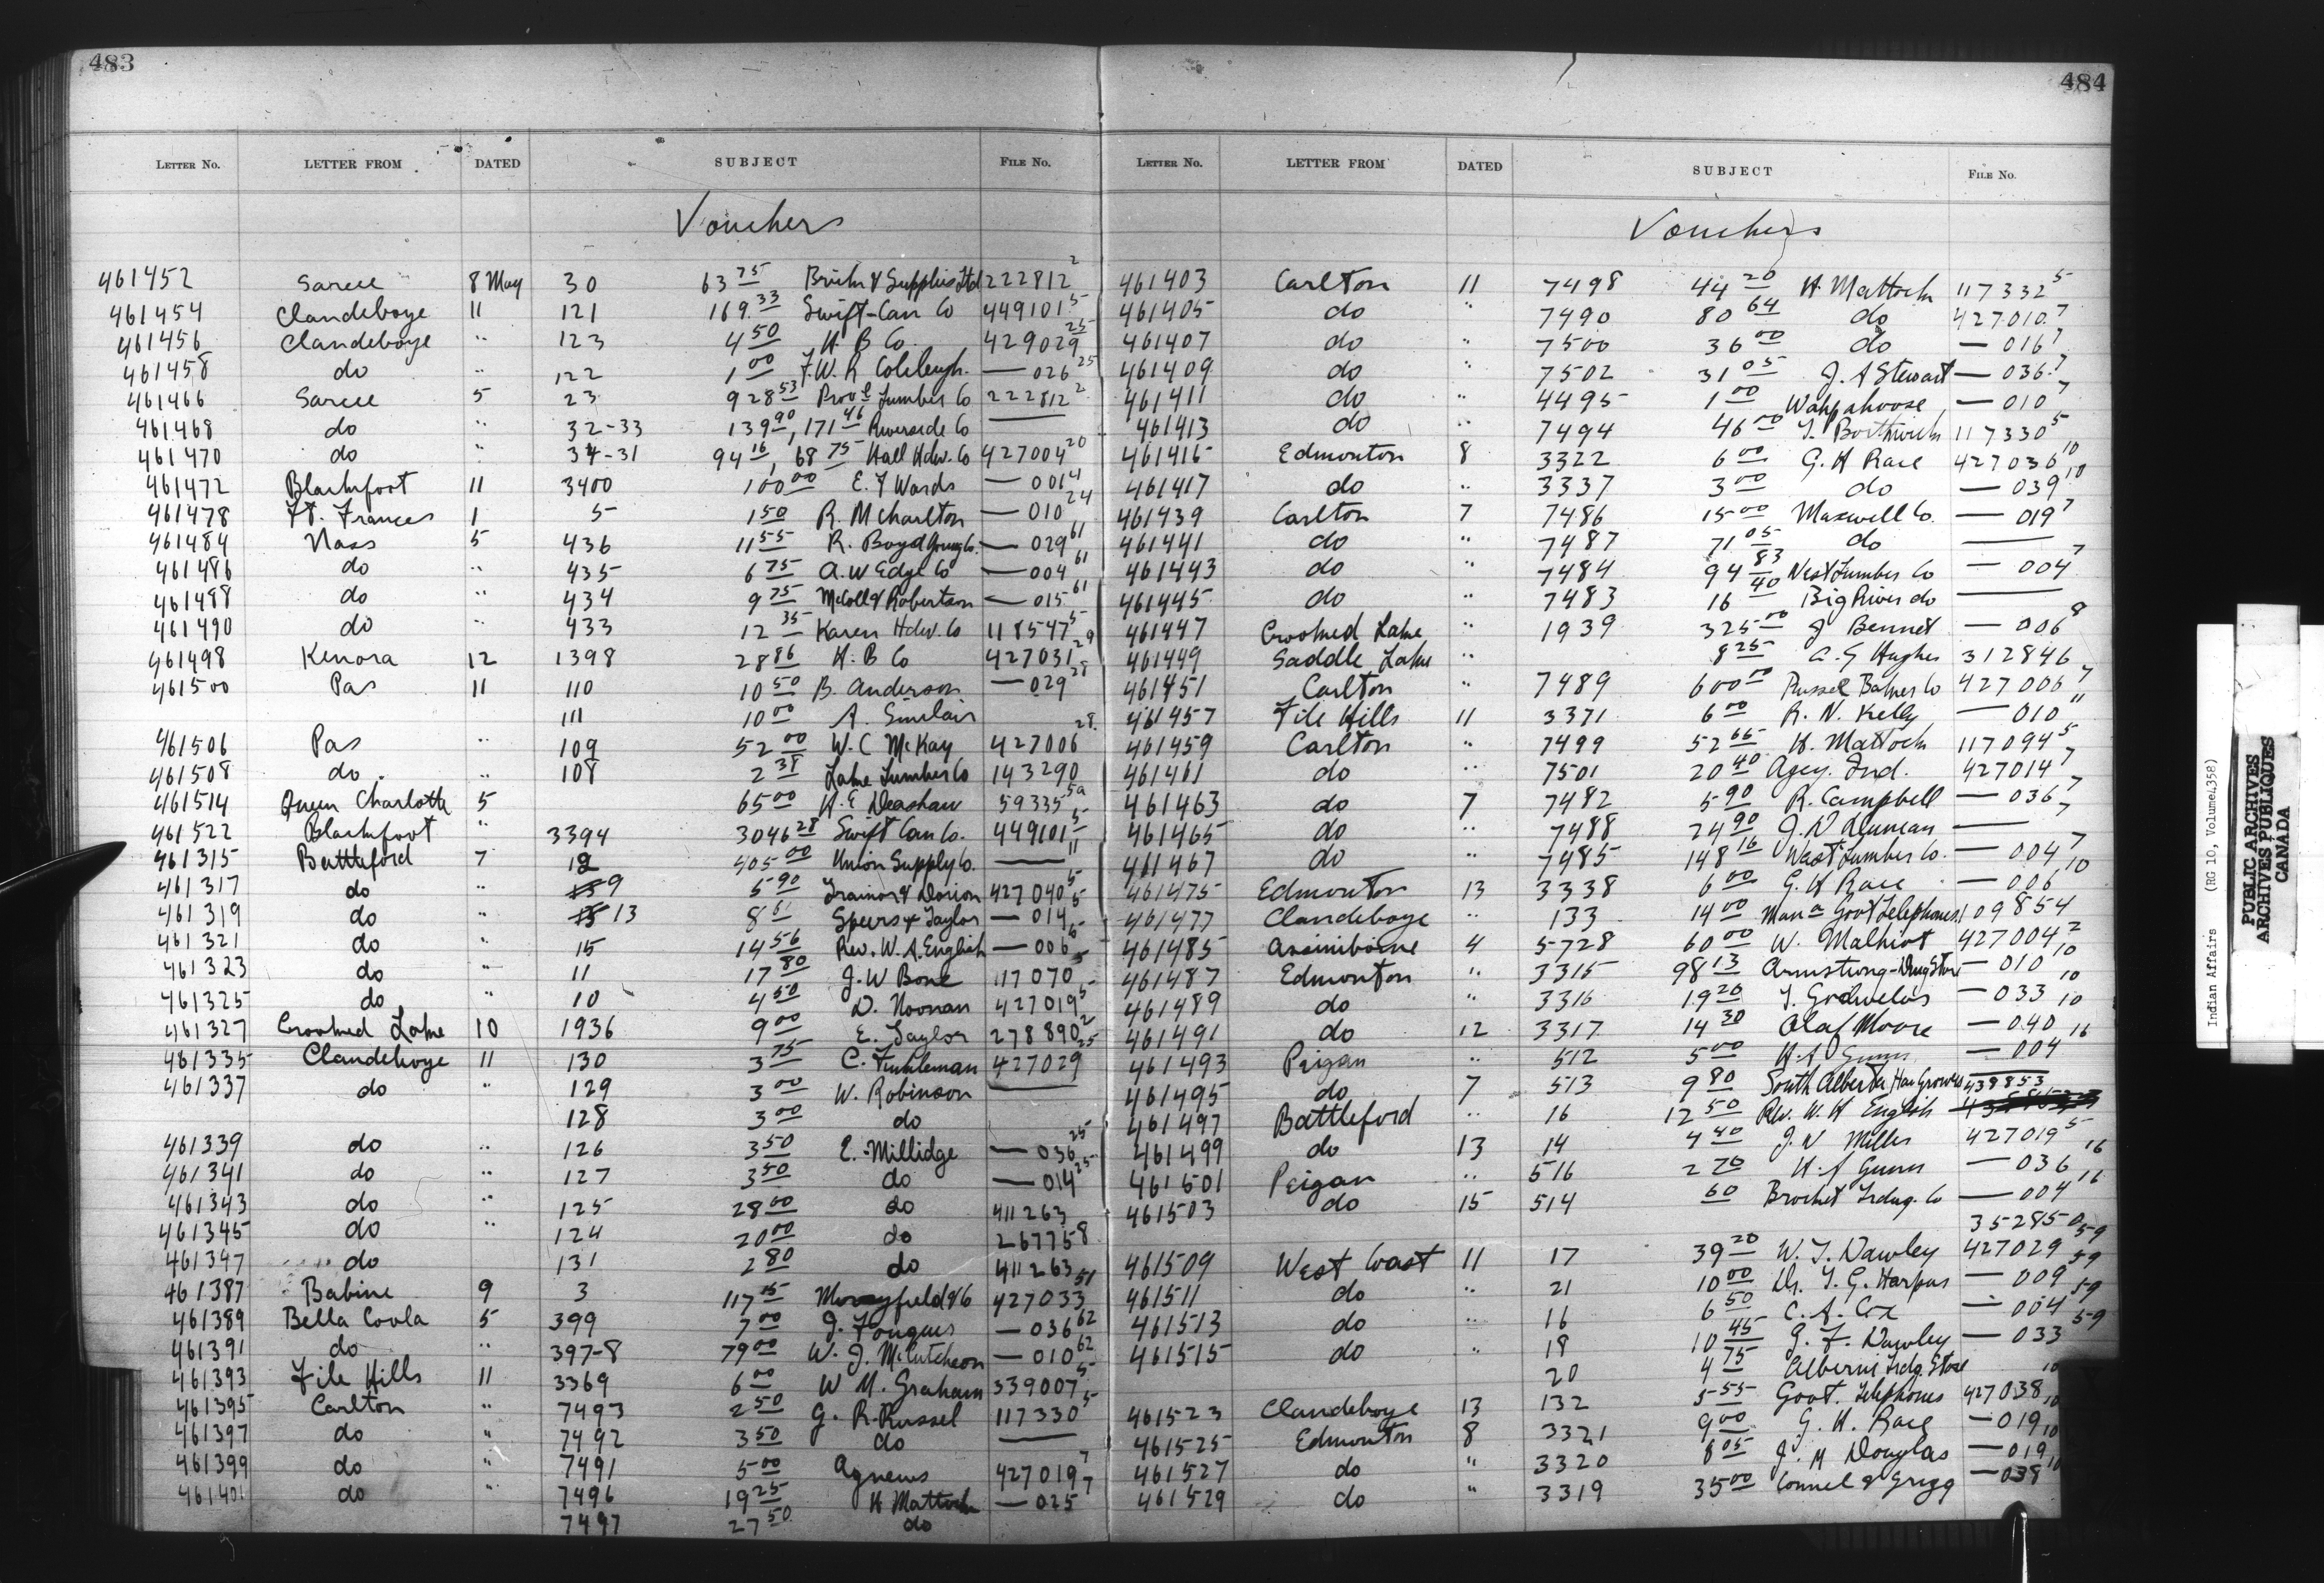 483
LETTER No. LETTER FROM DATED SUBJECT FILE No.
Vouchers
461452 Sarcee 8 May 30 63 75 Supplies Ltd 222812 2
461454 Clandeboye 11 121 169.33 Swift-Can Co 449101 5
461456 Clandeboye " 123 4 50 H B Co. 429029 25
461458 do " 122 1 00 F.W. R Colcleugh. — 026 25
461466 Sarcee 5 23 928 53 Prov l Lumber Co 222812 2
461468 do " 32-33 139 90, 171 46 Riverside Co —
461470 do " 34-31 94 16, 68 75 Hall Hdw. Co 427004 20
461472 Blackfoot 11 3400 100 00 E. F Wards — 001 4
461478 Ft. Frances 1 5 1 50 R. McCharlton — 010 24
461484 Nass 5 436 11 55 R. Boyd Young Co. — 029 61
461486 do " 435 6 75 A. W Edge Co — 004 61
461488 do " 434 9 75 McColl & Robertson — 015 61
461490 do " 433 12 35 Karen Hdw. Co 118547 5
461498 Kenora 12 1398 28 86 H. B Co 427031 29
461500 Pas 11 110 10 50 B. Anderson — 029 28
111 10 00 A. Sinclair
461506 Pas " 109 52 00 W. C McKay 427006 28
461508 do " 108 2 38 Lake Lumber Co 143290
461514 Queen Charlotte 5 65 00 H. E Deashaw 59335 5a
461522 Blackfoot " 3394 3046 28 Swift Can Co. 449101 5
461315 Battleford 7 12 405 00 Union Supply Co. — 11
461317 do " 9 5 90 Trainor & Dorion 427040 5
461319 do " 13 8 61 Speers & Taylor — 014 5
461321 do " 15 14 56 Rev. W. A. English — 006 5
461323 do " 11 17 80 J. W Bone 117070 5
461325 do " 10 4 50 D. Noonan 427019 5
461327 Crooked Lake 10 1936 9 00 E. Taylor 278890 2
461335 Clandeboye 11 130 3 75 C. Finkleman 427029 25
461337 do " 129 3 00 W. Robinson —
128 3 00 do
461339 do " 126 3 50 E. Millidge — 036 25
461341 do " 127 3 50 do — 014 25
461343 do " 125 28 00 do 411263
461345 do " 124 20 00 do 267758
461347 do 131 2 80 do 411263
461387 Babine 9 3 117 15 427033 51
461389 Bella Coola 5 399 7 00 J. Fougues — 036 62
461391 do " 397-8 79 00 W. J. McCutcheon — 010 62
461393 File Hills 11 3369 6 00 W M. Graham 339007 5
461395 Carlton " 7493 2 50 G. R. Russel 117330 5
461397 do " 7492 3 50 do —
461399 do " 7491 5 00 Agnews 427019 7
461401 do " 7496 19 25 H Mattock — 025 7
7497 27 50 do
484
LETTER No. LETTER FROM DATED SUBJECT FILE No.
Vouchers
461403 Carlton 11 7498 44 20 H. Mattock 117332 5
461405 do " 7490 80 64 do 427010 7
461407 do " 7500 36 00 do — 016 7
461409 do " 7502 31 05 J. A Stewart — 036 7
461411 do " 4495 1 00 Wahpahoose — 010 7
461413 do " 7494 46 00 T. Borthwick 117330 5
461415 Edmonton 8 3322 6 00 G. H Race 427036 10
461417 do " 3337 3 00 do — 039 10
461439 Carlton 7 7486 15 00 Maxwell Co. — 019 7
461441 do " 7487 71 05 do —
461443 do " 7484 94 83 West Lumber Co — 004 7
461445 do " 7483 16 40 Big River do —
461447 Crooked Lake " 1939 325 00 J Bennet — 006 8
461449 Saddle Lake " 8 25 A. G Hughes 312846
461451 Carlton " 7489 600 00 Russel Baker Co 427006 7
461457 File Hills 11 3371 6 00 R. N. Kelly — 010 11
461459 Carlton " 7499 52 65 H. Mattock 117094 5
461461 do " 7501 20 40 Agcy. Ind. 427014 7
461463 do 7 7482 5 90 R. Campbell — 036 7
461465 do " 7488 24 90 J. D — 7
461467 do " 7485 148 16 West Lumber Co. — 004 7
461475 Edmonton 13 3338 6 00 G. H Race — 006 10
461477 Clandeboye " 133 14 00 Man a Govt Telephones 109854
461485 Assiniboine 4 5728 60 00 W. Malhiot 427004 2
461487 Edmonton " 3315 98 13 Armstrong-Drug Store — 010 10
461489 do " 3316 19 20 — 033 10
461491 do 12 3317 14 30 Olaf Moore — 040 10
461493 Peigan " 512 5 00 H. A Gunn — 004 16
461495 do 7 513 9 80 South Alberta Hay Growers 439853
461497 Battleford " 16 12 50 Rev. W. H English
461499 do 13 14 4 40 J. N Millis 427019 5
461501 Peigan " 516 2 70 H. A Gunn — 036 16
461503 do 15 514 60 Brocket Trdng. Co — 004 16
352850
461509 West Coast 11 17 39 20 W. T. Dawley 427029 59
461511 do " 21 10 00 Dr. T. G. Harpus — 009 59
461513 do " 16 6 50 C. A. Cox — 004 59
461515 do " 18 10 45 G. F. Dawley — 033 59
20 4 75 Alberni Trdg. Store
461523 Clandeboye 13 132 5 55 Govt. Telephones 427038 10
461525 Edmonton 8 3321 9 00 G. H. Race — 019 10
461527 do " 3320 8 05 J. M Douglas — 019 10
461529 do " 3319 35 00 Connel & Grigg — 038 10
Indian Affairs (RG 10, Volume 1358)
PUBLIC ARCHIVES
ARCHIVES PUBLIQUES
CANADA